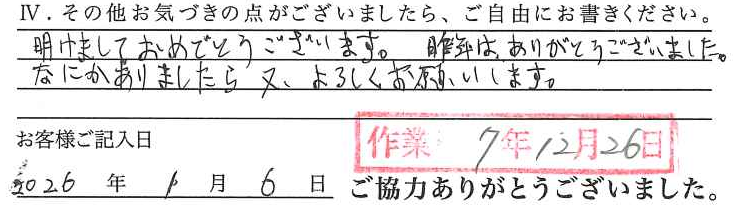 Ⅳ．その他お気づきの点がございましたら、ご自由にお書きください。
明けましておめでとうございます。 昨年は、ありがとうございました。
なにかありましたら又、よろしくお願いします。
お客様ご記入日
作業 7年12月26日
2026 年 1 月 6 日 ご協力ありがとうございました。